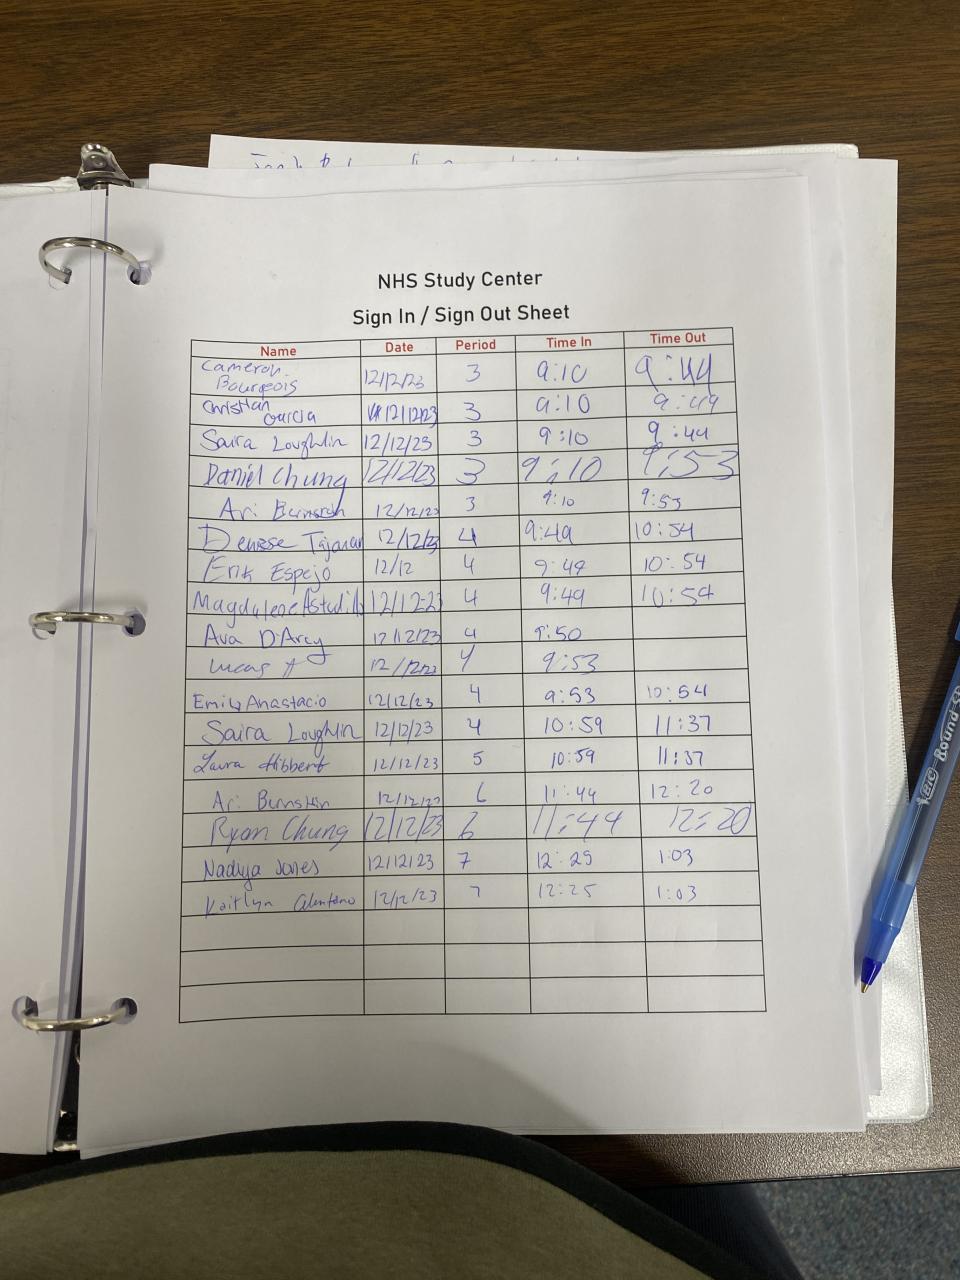 NHS Study Center
Sign In / Sign Out Sheet
Name Date Period Time In Time Out
Cameron
Bourgeois 12/12/23 3 9:10 9:44
Christian
Garcia 12/12/23 3 9:10 9:49
Saira Loughlin 12/12/23 3 9:10 9:44
Daniel Chung 12/12/23 3 9:10 9:53
Ari Bernstein 12/12/23 3 9:10 9:53
Denisse 12/12/23 4 9:49 10:54
Erik Espejo 12/12 4 9:49 10:54
Magdalene Astudillo 12/12/23 4 9:49 10:54
Ava D'Arcy 12/12/23 4 9:50
Lucas A 12/12/23 4 9:53
Emily Anastacio 12/12/23 4 9:53 10:54
Saira Loughlin 12/12/23 4 10:59 11:37
Laura Hibbert 12/12/23 5 10:59 11:37
Ari Bernstein 12/12/23 6 11:44 12:20
Ryan Chung 12/12/23 6 11:44 12:20
Nadiya Jones 12/12/23 7 12:25 1:03
Kaitlyn 12/12/23 7 12:25 1:03
BIC Round